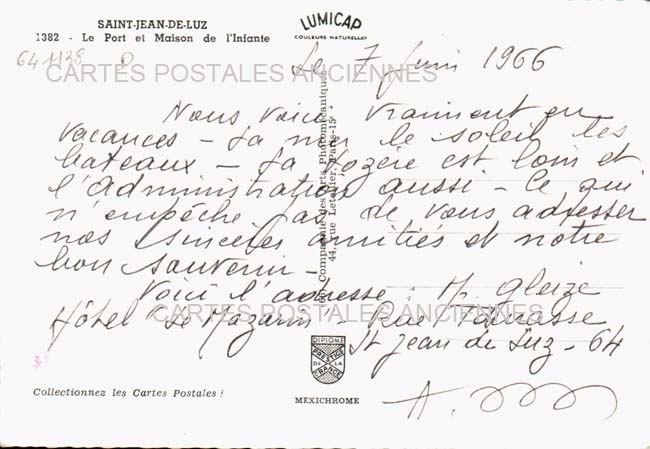 SAINT-JEAN-DE-LUZ
1382 - Le Port et Maison de l'Infante
LUMICAP
COULEURS NATURELLES
641138 D
Le 7 Juin 1966
CARTES POSTALES ANCIENNES
Nous voici vraiment en
vacances - La mer le soleil les
bateaux - La Lozère est loin et
l'administration aussi - Ce qui
n'empêche pas de vous adresser
nos sincères amitiés et notre
bon souvenir -
Voici l'adresse : M. Gleize
CARTES POSTALES ANCIENNES
Hôtel Le Mazarin - Rue
St Jean de Luz - 64
A.
Compagnie des Arts Photomécaniques
44, Rue Letellier, Paris-15e
DIPLOME
PRESTIGE
DE LA
FRANCE
MEXICHROME
Collectionnez les Cartes Postales !